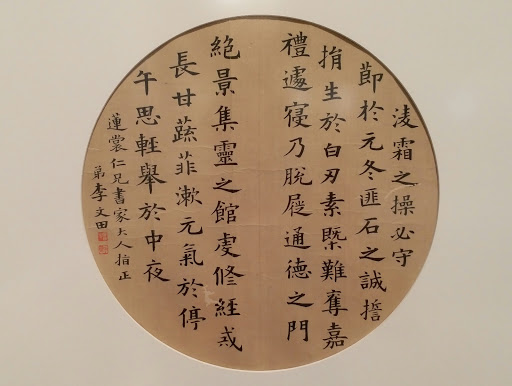 淩霜之操必守
節於元冬匪石之誠誓
捐生於白刃素槩難奪嘉
禮遽寑乃脫屣通德之門
絕景集靈之館虔修經戒
長甘蔬菲漱元氣於停
午思輕舉於中夜
蓮裳仁兄書家大人指正
弟李文田